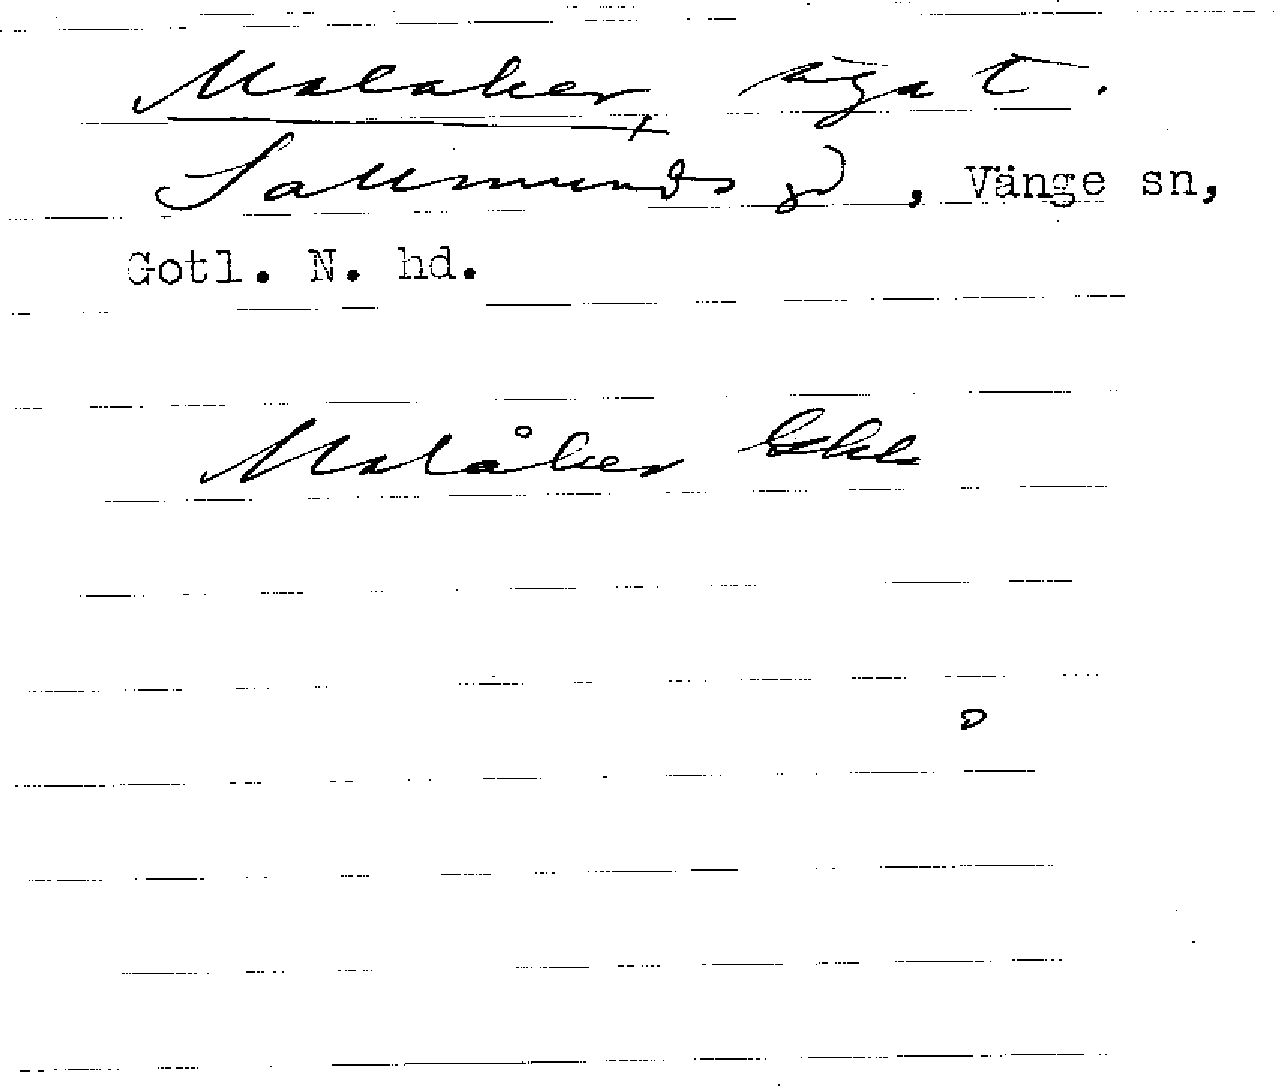 Malaker, äga t.
Sallmunds gd, Vänge sn,
Gotl. N. hd.
Malåker